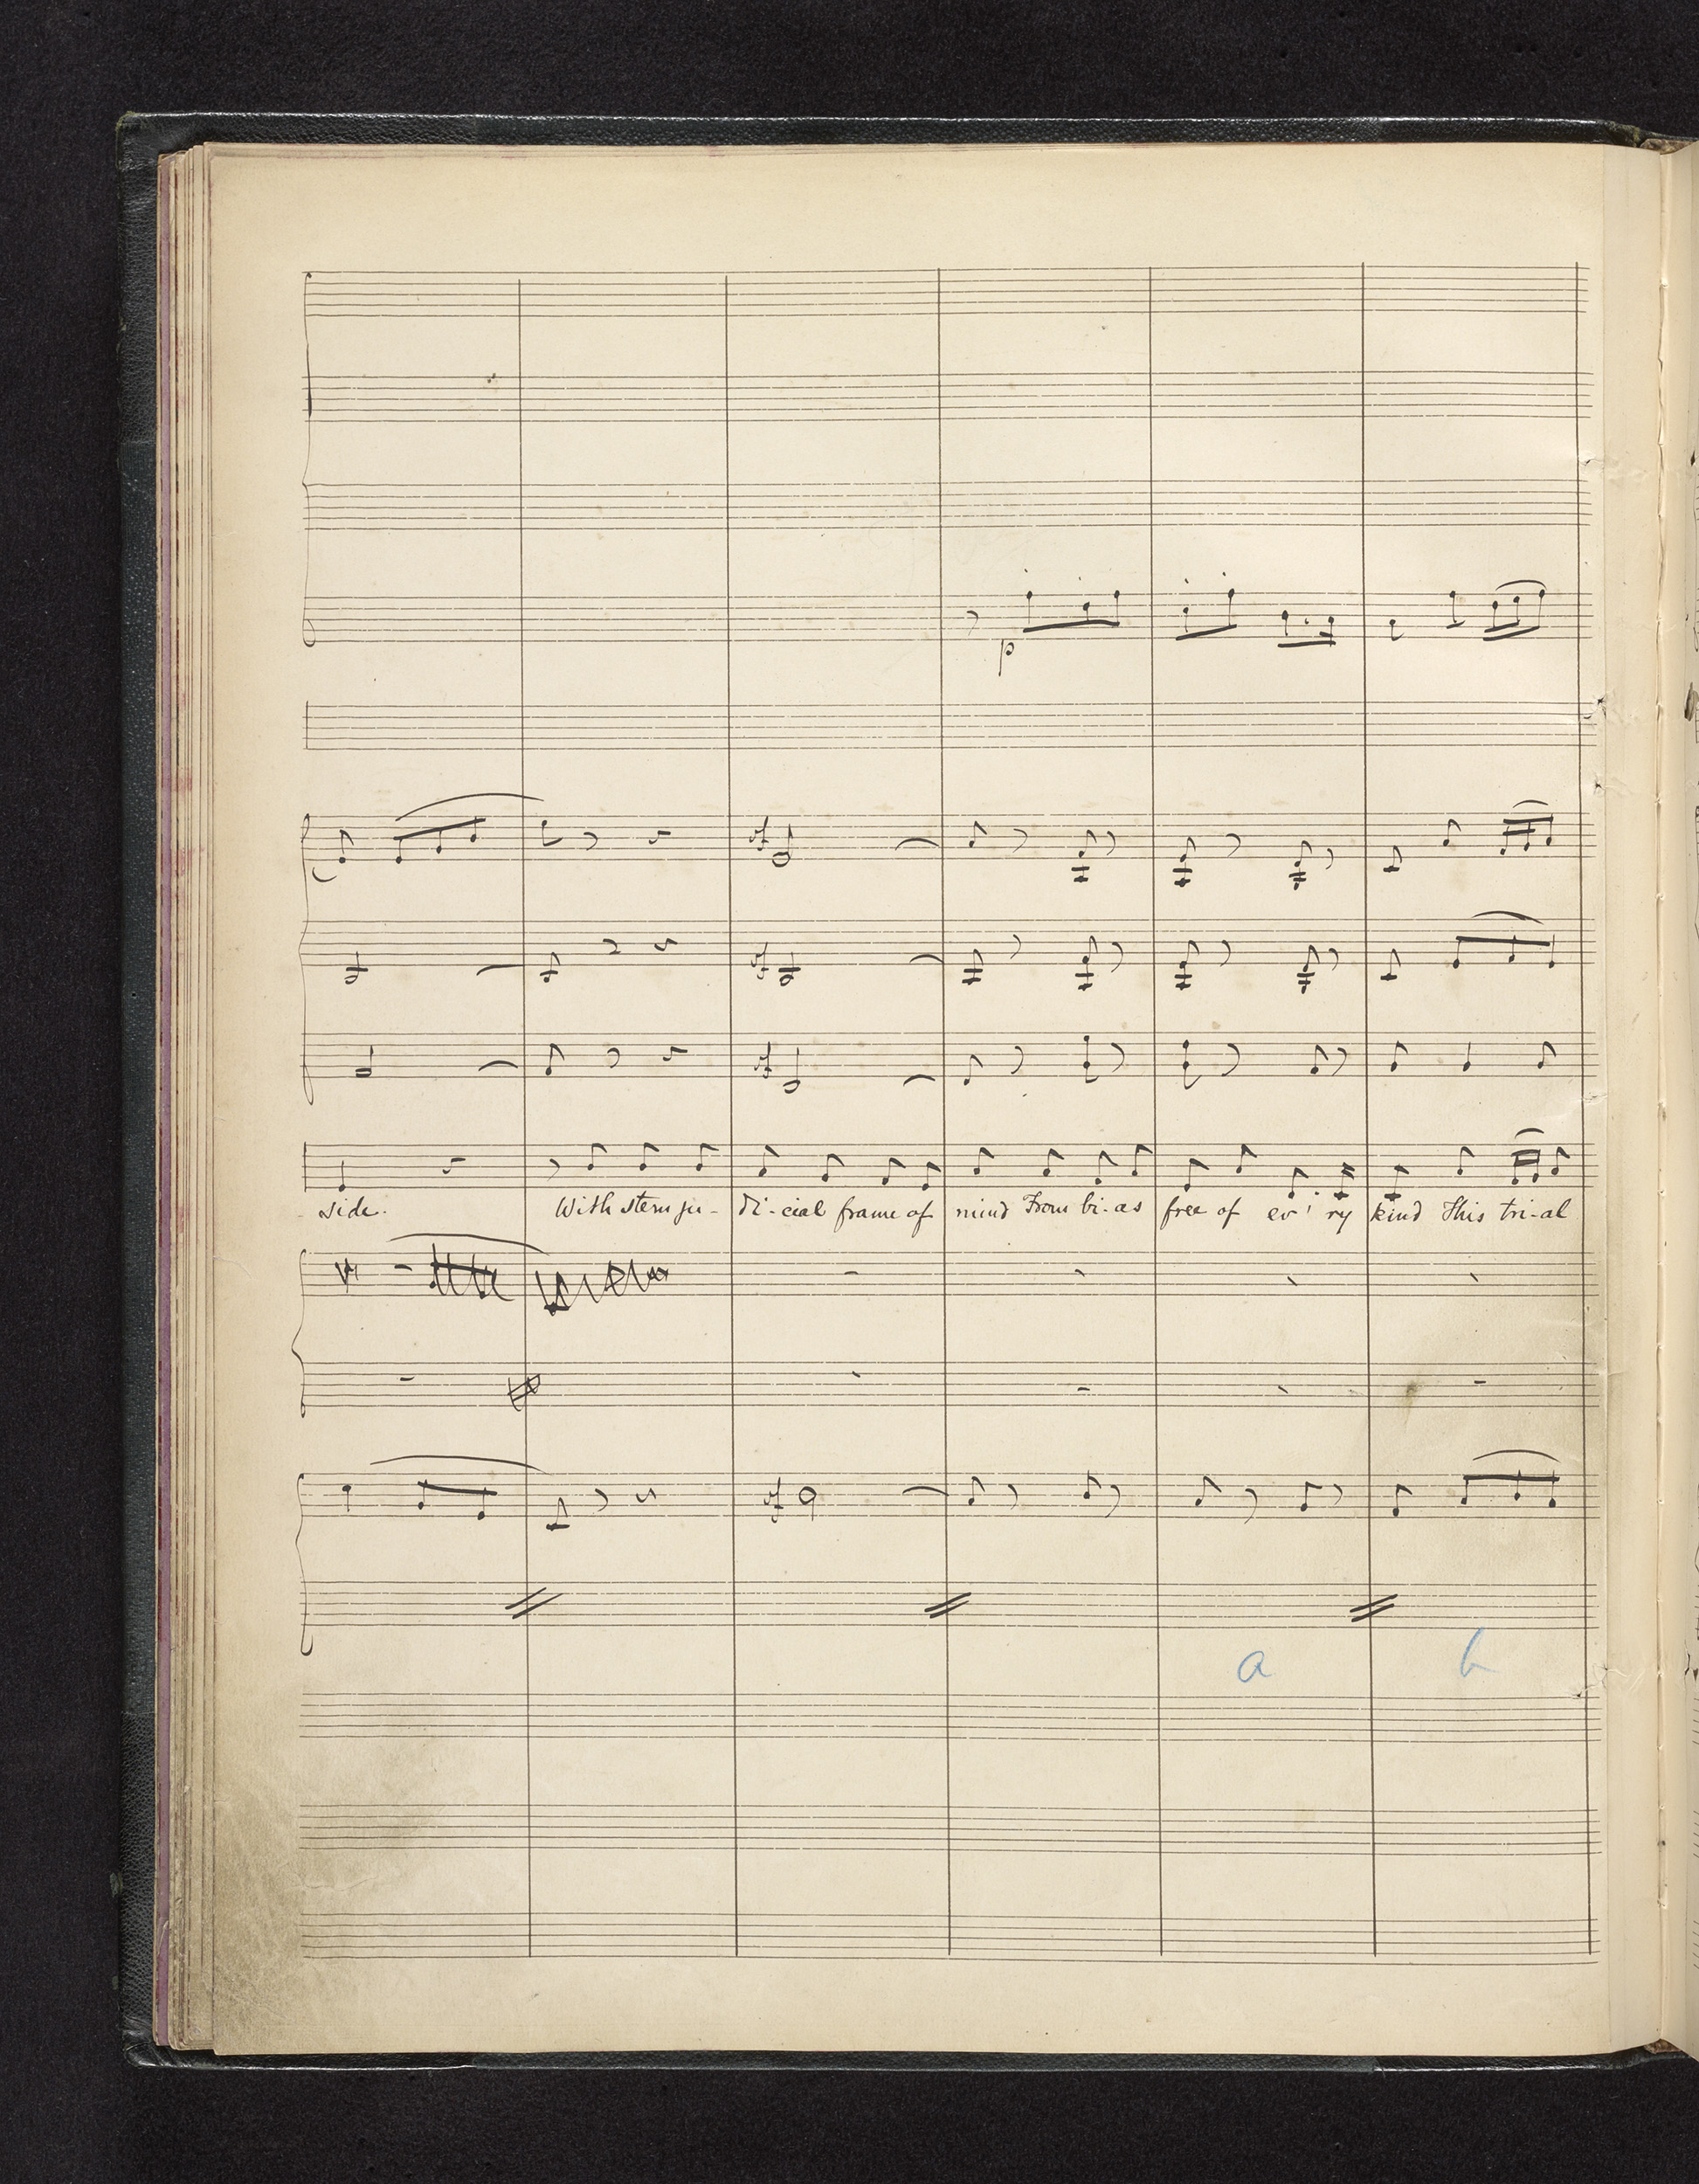 p
sf
sf
sf
- side. With stern ju - di - cial frame of mind From bi - as free of ev' ry kind This tri - al
sf
a b